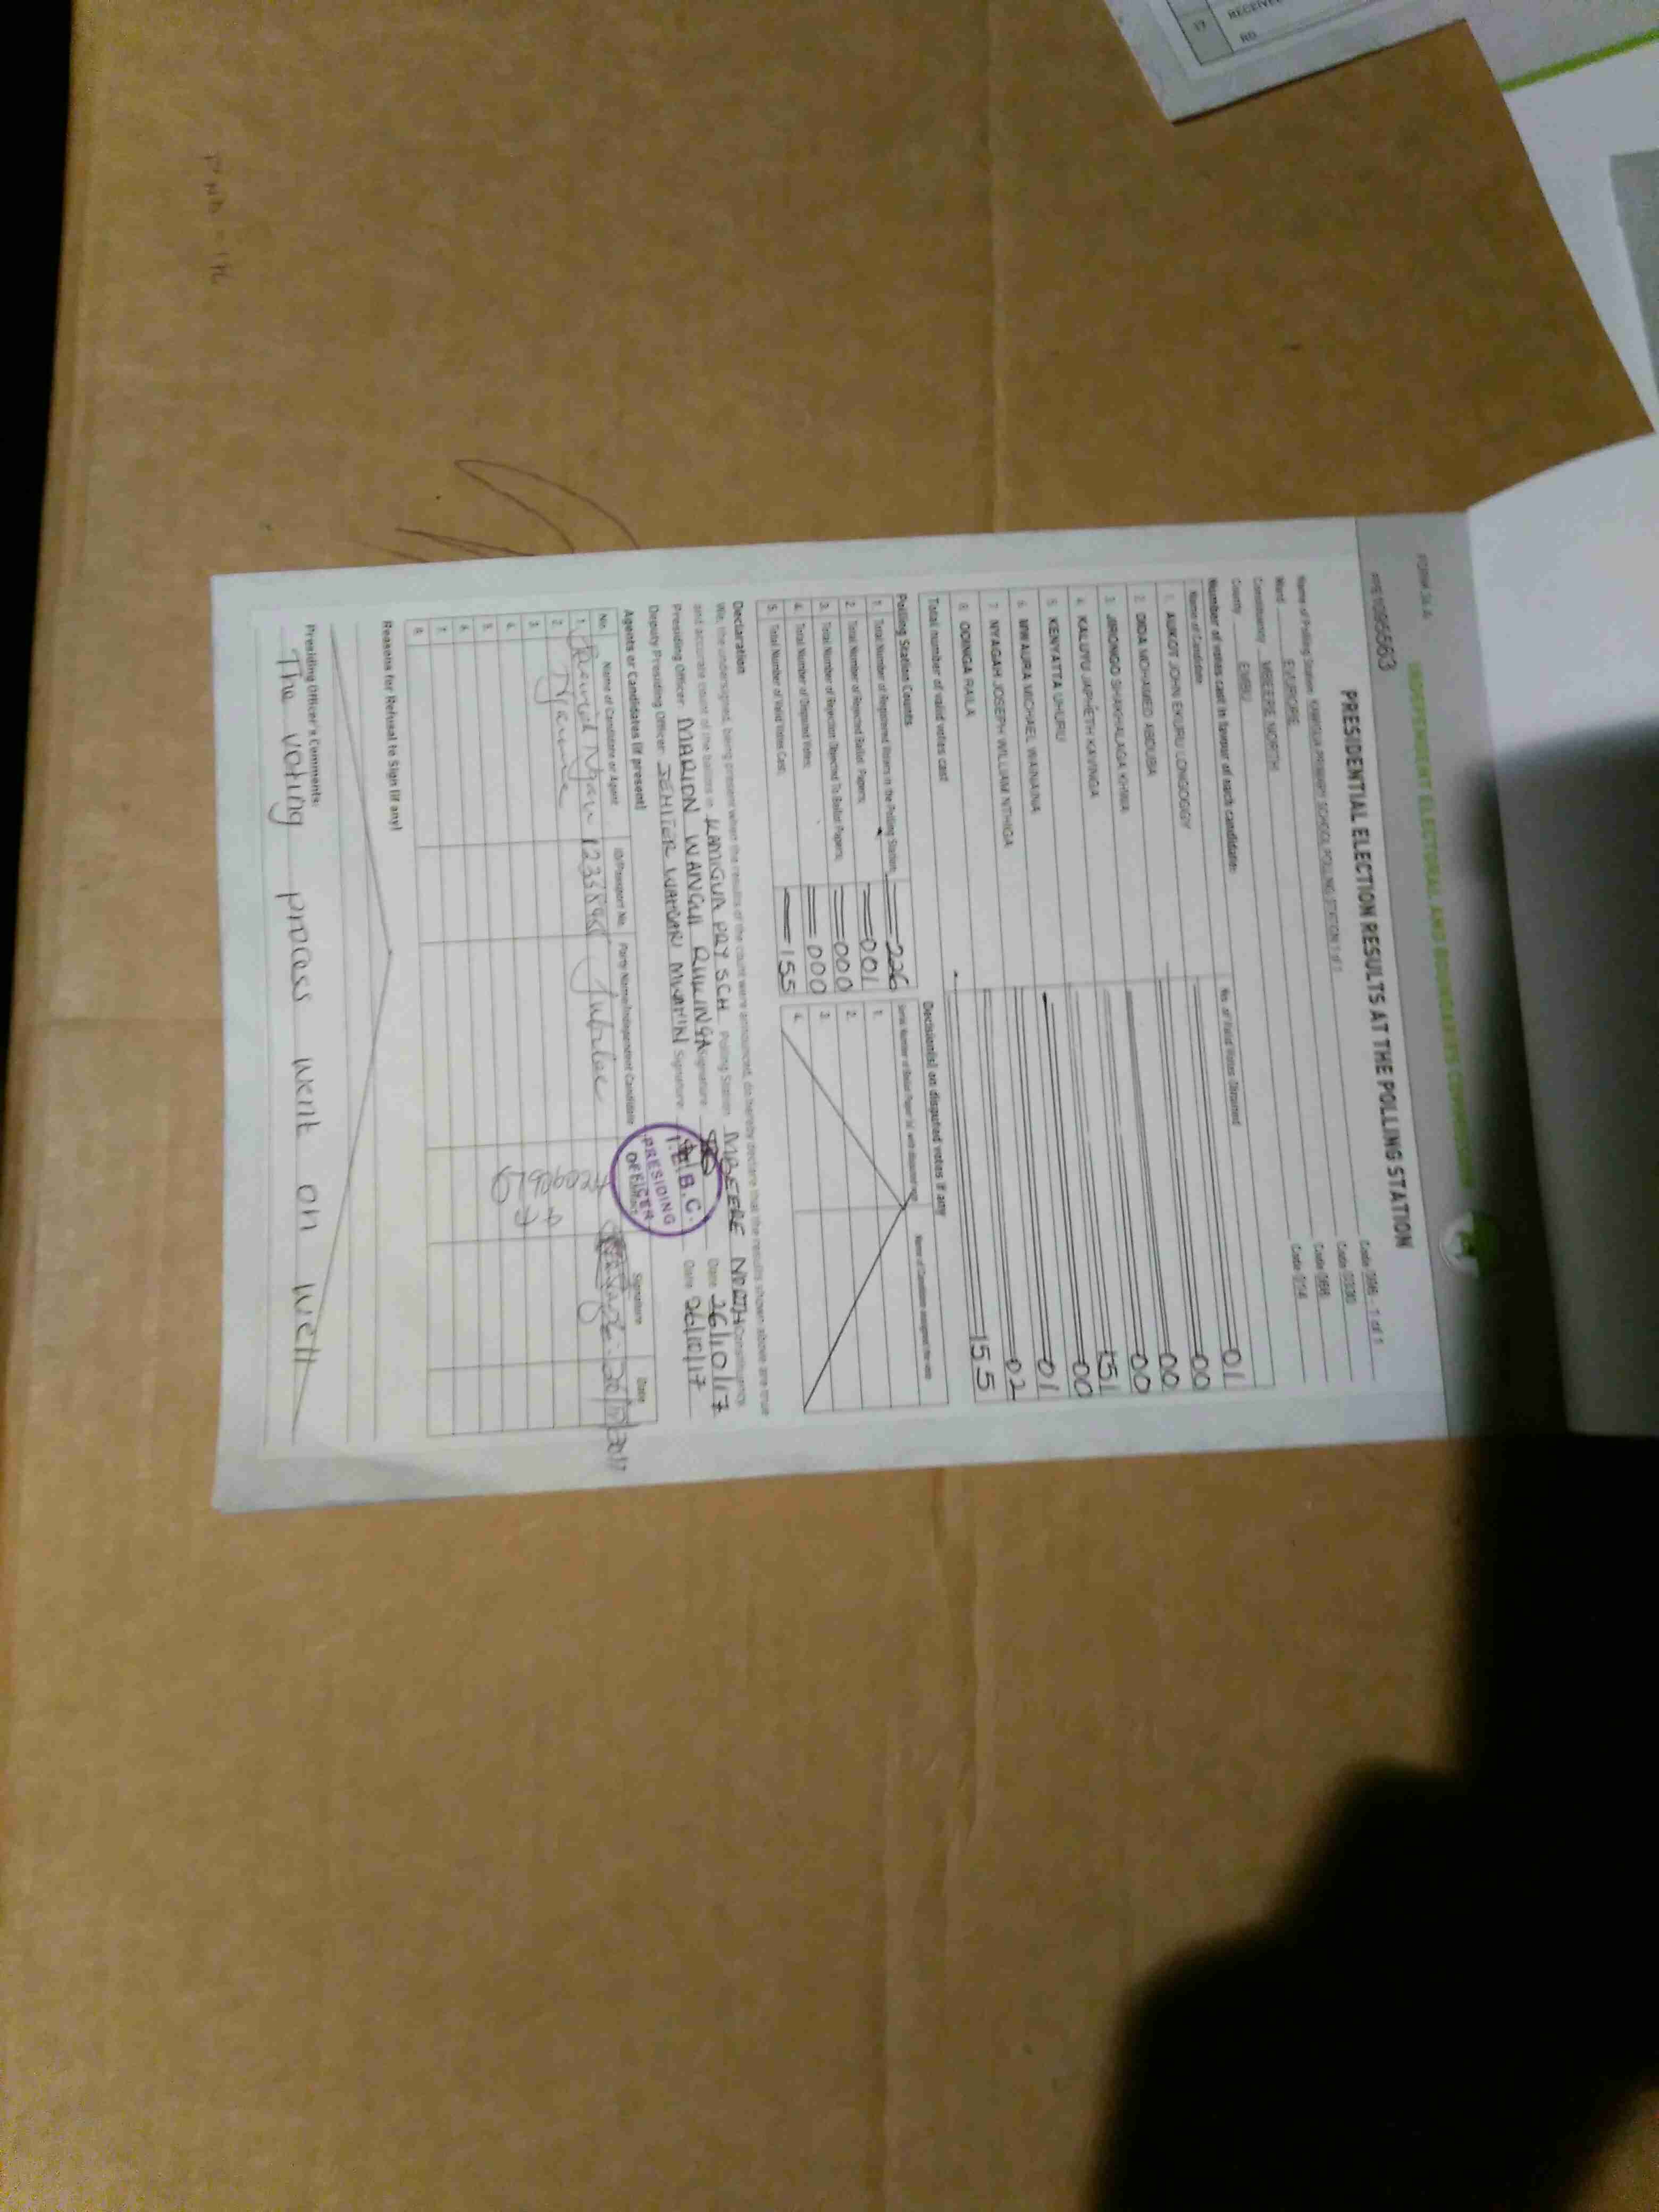 FORM 34 A
INDEPENDENT ELECTORAL AND BOUNDARIES COMMISSION
PRESIDENTIAL ELECTION RESULTS AT THE POLLING STATION
Name of Polling Station KAMIGUA PRIMARY SCHOOL POLLING STATION 1 of 1
Code 1 of 1
Ward EVURORE
Constituency MBEERE NORTH
County EMBU Code 014
Number of votes cast in favour of each candidate:
Name of Candidate No. of Valid Votes Obtained
1. AUKOT JOHN EKURU LONGOGGY 01
2. DIDA MOHAMED ABDUBA 00
3. JIRONGO SHAKHALAGA KHWA 00
4. KALUYU JAPHETH KAVINGA 00
5. KENYATTA UHURU 151
6. MWAURA MICHAEL WAINAINA 00
7. NYAGAH JOSEPH WILLIAM NTHIGA 01
8. ODINGA RAILA 02
Total number of valid votes cast 155
Polling Station Counts
1. Total Number of Registered Voters in the Polling Station 226
2. Total Number of Rejected Ballot Papers; 001
3. Total Number of Rejection Objected To Ballot Papers; 000
4. Total Number of Disputed Votes; 000
5. Total Number of Valid Votes Cast; 155
Decision(s) on disputed votes if any
1.
2.
3.
4.
Declaration
We, the undersigned, being present when the results of the count were announced, do hereby declare that the results shown above are true
and accurate count of the ballots in KAMIGUA PRY SCH Polling Station MBEERE NORTH Constituency
Presiding Officer: MARION WANGUI Signature Date 26/10/17
Deputy Presiding Officer Signature Date 26/10/17
I.E.B.C.
PRESIDING
OFFICER
Agents or Candidates (if present)
No. Name of Candidate or Agent ID/Passport No. Party Name/Independent Candidate Signature Date
1. Jubilee
2.
3.
4.
5.
6.
7.
8.
Reasons for Refusal to Sign (if any)
Presiding Officer's Comments:
The voting process went on well